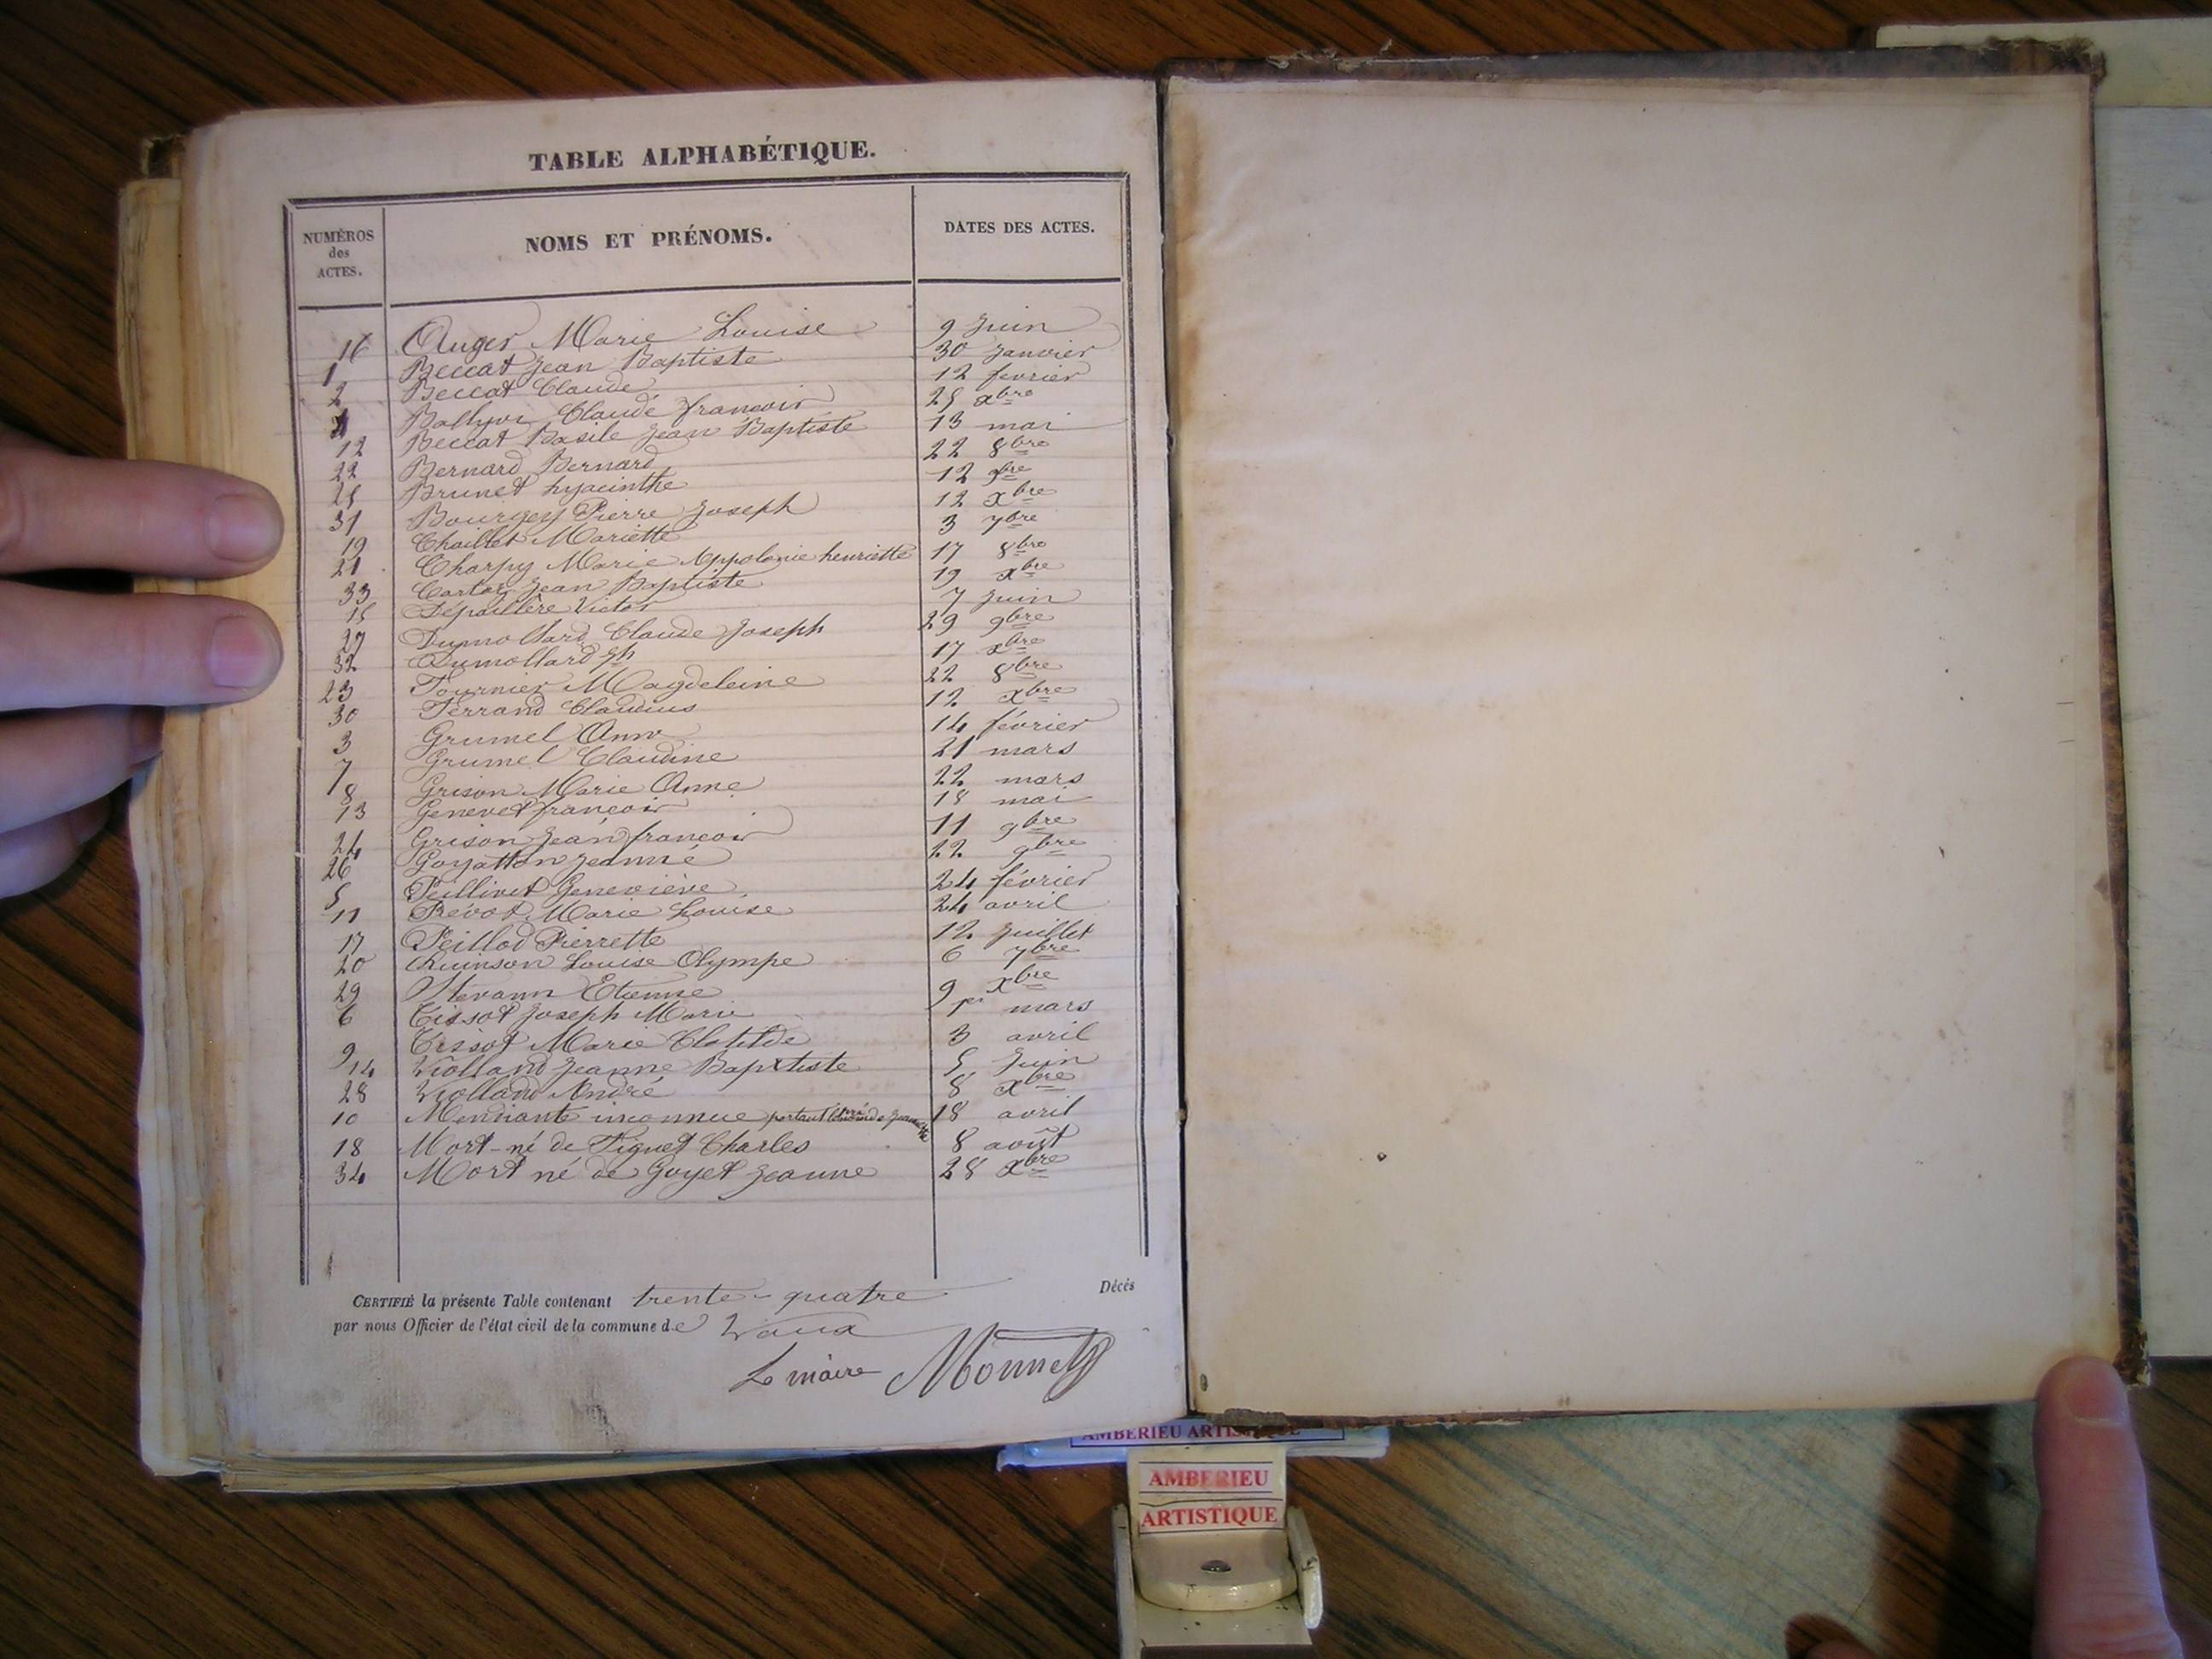 TABLE ALPHABÉTIQUE.
NUMÉROS des ACTES. NOMS ET PRÉNOMS. DATES DES ACTES.
16 Auger Marie Louise 9 Juin
1 Beccat Jean Baptiste 30 Janvier
2 Beccat Claude 12 fevrier
Claude francois 25 xbre
12 Beccat Basile Jean Baptiste 13 mai
22 Bernard Bernard 22 8bre
25 Brunet hyacinthe 12 9bre
31 Pierre Joseph 12 xbre
19 Chaillet Mariette 3 7bre
21 Charpy Marie Appolonie henriette 17 8bre
33 Jean Baptiste 19 xbre
15 Dépaillère Victor 7 Juin
27 Dumollard Claude Joseph 29 9bre
32 Dumollard jh 17 xbre
23 Fournier Magdeleine 22 8bre
30 Ferrand Claudius 12 xbre
3 Grumel 14 février
7 Grumel Claudine 21 mars
8 Grison Marie Anne 22 mars
13 Genevet françois 18 mai
24 Grison Jean francois 11 9bre
26 Goyatton Jeanne 22 9bre
5 Geneviève 24 février
11 Prévot Marie Louise 24 avril
17 Peillod Pierrette 12 Juillet
20 Ruinson Louise Olympe 6 7bre
29 Etienne 9 xbre
6 Tissot Joseph Marie 1er mars
9 Tissot Marie Clotilde 3 avril
14 Violland Jeanne Baptiste 5 Juin
28 Violland André 8 xbre
10 Mendiante inconnue portant 18 avril
18 Mort-né de Figuet Charles 8 août
34 Mort né de Goyet Jeanne 28 xbre
Décés
CERTIFIÉ la présente Table contenant trente-quatre
par nous Officier de l'état civil de la commune de Vaux
Le maire Monnet
AMBERIEU ARTISTIQUE
AMBERIEU
ARTISTIQUE